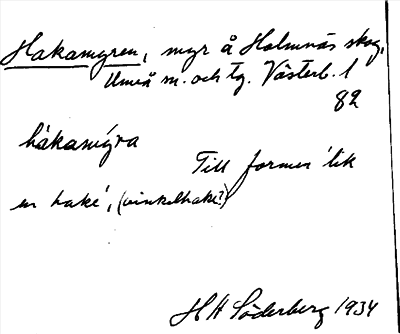 Hakamyren, myr å Holmnäs skog,
Umeå sn. och tg. Västerb. l
82
håkamy̌ra
Till formen 'lik
en hake', (vinkelhake?)
H H Söderberg 1934